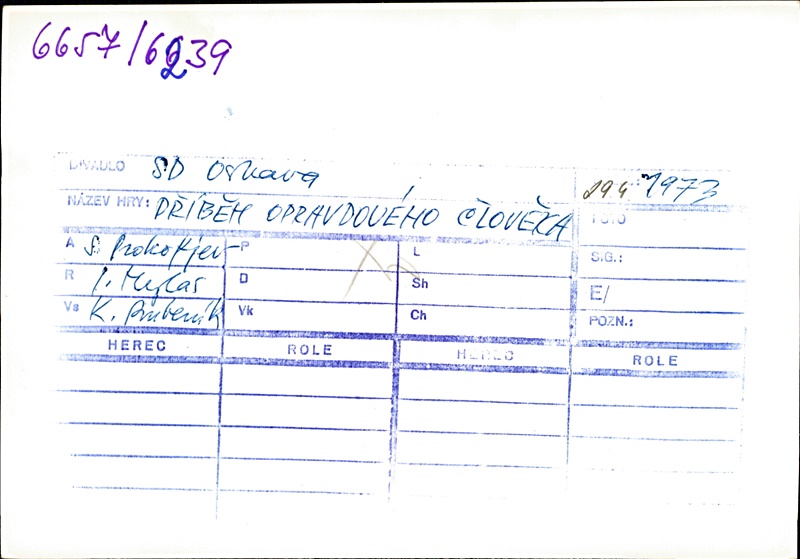 6657/6639
DIVADLO SD Ostrava 29.4. 1973
NÁZEV HRY: PŘÍBĚH OPRAVDOVÉHO ČLOVĚKA FOTO
A S. Prokofjev P L SIG.:
R I. Mylas D Sh E/
Vs K. Vk Ch POZN.:
HEREC ROLE HEREC ROLE